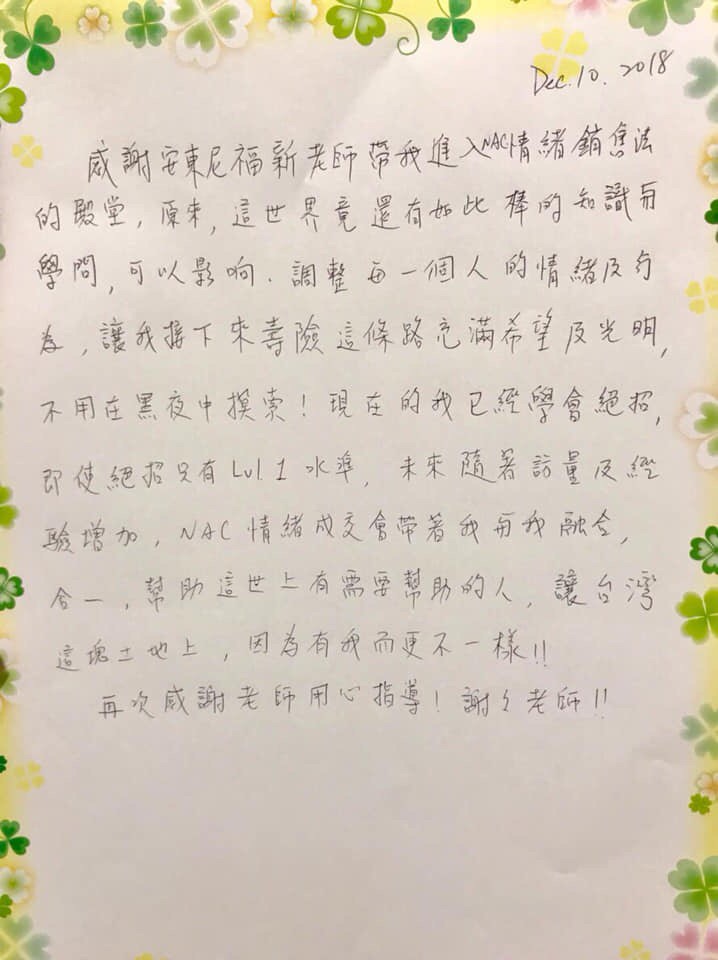 Dec. 10. 2018
感謝安東尼福新老師帶我進入NAC情緒銷售法
的殿堂，原來，這世界竟還有如此棒的知識與
學問，可以影响．調整每一個人的情緒及行
為，讓我接下來壽險這條路充滿希望及光明，
不用在黑夜中摸索！現在的我已經學會絕招，
即使絕招只有Lvl.1水準，未來隨著訪量及經
驗增加，NAC情緒成交會帶著我與我融合，
合一，幫助這世上有需要幫助的人，讓台灣
這塊土地上，因為有我而更不一樣!!
再次感謝老師用心指導！謝々老師!!